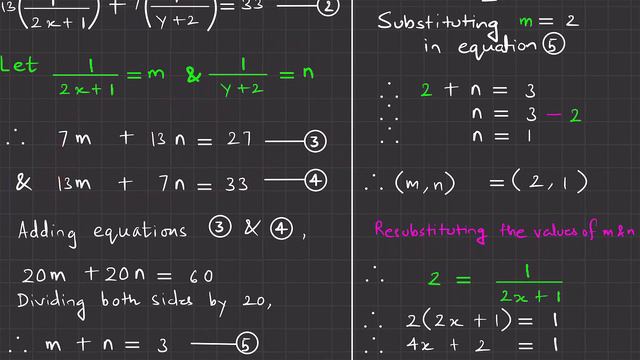 13(1/(2x+1)) + 7(1/(y+2)) = 33 —— ②
Let 1/(2x+1) = m & 1/(y+2) = n
∴ 7m + 13n = 27 —— ③
& 13m + 7n = 33 —— ④
Adding equations ③ & ④,
20m + 20n = 60
Dividing both sides by 20,
∴ m + n = 3 —— ⑤
Substituting m = 2
in equation ⑤
∴ 2 + n = 3
∴ n = 3 - 2
∴ n = 1
∴ (m, n) = (2, 1)
Resubstituting the values of m & n
∴ 2 = 1/(2x+1)
∴ 2(2x+1) = 1
∴ 4x + 2 = 1